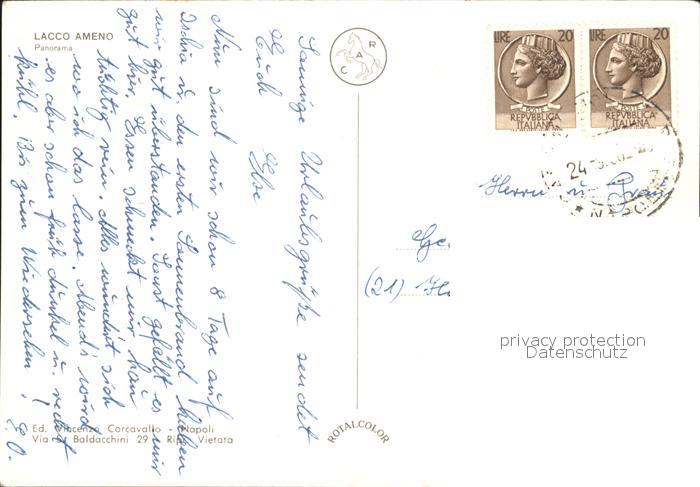 LACCO AMENO
Panorama
CAR
Sonnige Urlaubsgrüße sendet
Euch Else
Nun sind wir schon 8 Tage auf
Ischia u. den ersten Sonnenbrand haben
wir gut überstanden. Sonst gefällt es mir
gut hier. Essen schmeckt mir,
tüchtig rein. Alles wundert sich
wo ich das lasse. Abends wird
es aber schon früh dunkel u. recht
kühl. Bis zum Wiedersehn!
E.O.
Ed. Vincenzo Carcavallo - Napoli
Via Baldacchini 29 - Rip. Vietata
ROTALCOLOR
LIRE 20
POSTE
REPVBBLICA
ITALIANA
LIRE 20
POSTE
REPVBBLICA
ITALIANA
24
Herrn u. Frau
(21)
privacy protection
Datenschutz